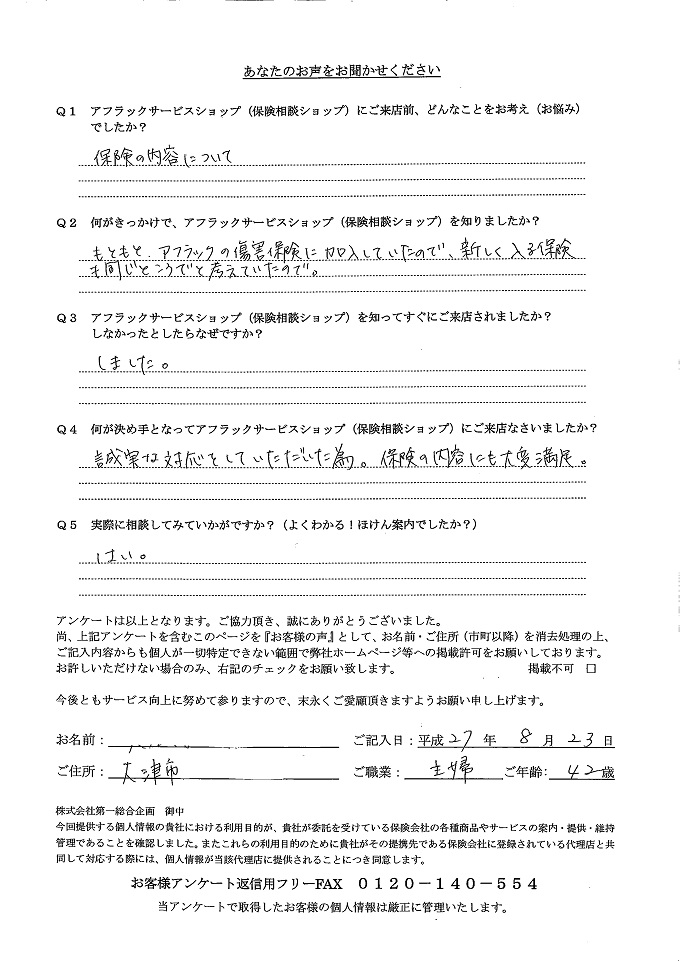 あなたのお声をお聞かせください
Q１　アフラックサービスショップ（保険相談ショップ）にご来店前、どんなことをお考え（お悩み）
でしたか？
保険の内容について
Q２　何がきっかけで、アフラックサービスショップ（保険相談ショップ）を知りましたか？
もともと、アフラックの傷害保険に加入していたので、新しく入る保険
も同じところでと考えていたので。
Q３　アフラックサービスショップ（保険相談ショップ）を知ってすぐにご来店されましたか？
しなかったとしたらなぜですか？
しました。
Q４　何が決め手となってアフラックサービスショップ（保険相談ショップ）にご来店なさいましたか？
誠実な対応をしていただいた為。保険の内容にも大変満足。
Q５　実際に相談してみていかがですか？（よくわかる！ほけん案内でしたか？）
はい。
アンケートは以上となります。ご協力頂き、誠にありがとうございました。
尚、上記アンケートを含むこのページを『お客様の声』として、お名前・ご住所（市町以降）を消去処理の上、
ご記入内容からも個人が一切特定できない範囲で弊社ホームページ等への掲載許可をお願いしております。
お許しいただけない場合のみ、右記のチェックをお願い致します。　掲載不可　□
今後ともサービス向上に努めて参りますので、末永くご愛顧頂きますようお願い申し上げます。
お名前：　ご記入日：平成27年 8月 23日
ご住所：大津市　ご職業：主婦　ご年齢：42歳
株式会社第一総合企画　御中
今回提供する個人情報の貴社における利用目的が、貴社が委託を受けている保険会社の各種商品やサービスの案内・提供・維持
管理であることを確認しました。またこれらの利用目的のために貴社がその提携先である保険会社に登録されている代理店と共
同して対応する際には、個人情報が当該代理店に提供されることにつき同意します。
お客様アンケート返信用フリーFAX　０１２０－１４０－５５４
当アンケートで取得したお客様の個人情報は厳正に管理いたします。